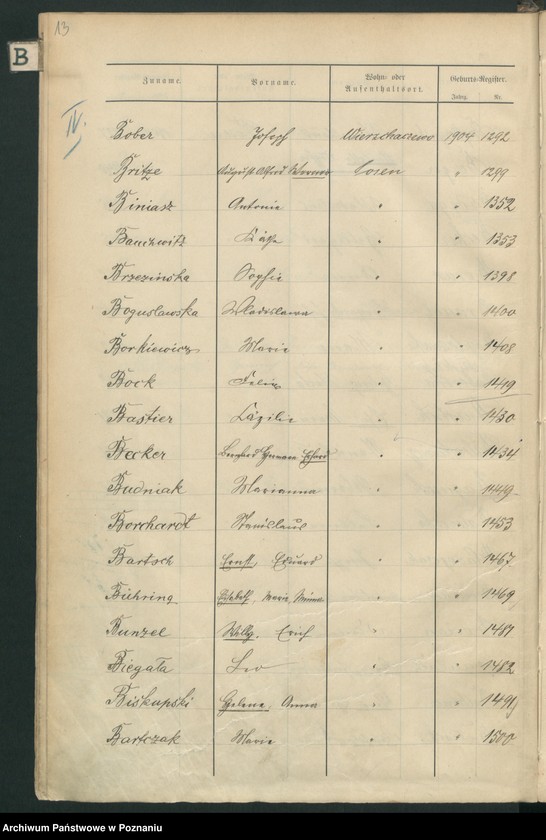 13
B
IV.
Zuname. Vorname. Wohn- oder Aufenthaltsort. Geburts-Register.
Jahrg. Nr.
Bober Joseph Wierzchaczewo 1904 1292
Britze August Alfred Werner Posen " 1299
Biniasz Antonie " " 1352
Banckwitz Käthe " " 1353
Brzezińska Sophie " " 1398
Boguslawska Wladislawa " " 1400
Borkiewicz Marie " " 1408
Bock Felix " " 1419
Bastier Cäzilie " " 1430
Becker Bernhard Hermann Erhard " " 1434
Budniak Marianna " " 1449
Borchardt Stanislaus " " 1453
Bartsch Ernst Eduard " " 1467
Bühring Marie Minna " " 1469
Bunzel Willy Erich " " 1487
Biegała Leo " " 1482
Biskupski Helene Anna " " 1491
Bartczak Marie " " 1500
Archiwum Państwowe w Poznaniu